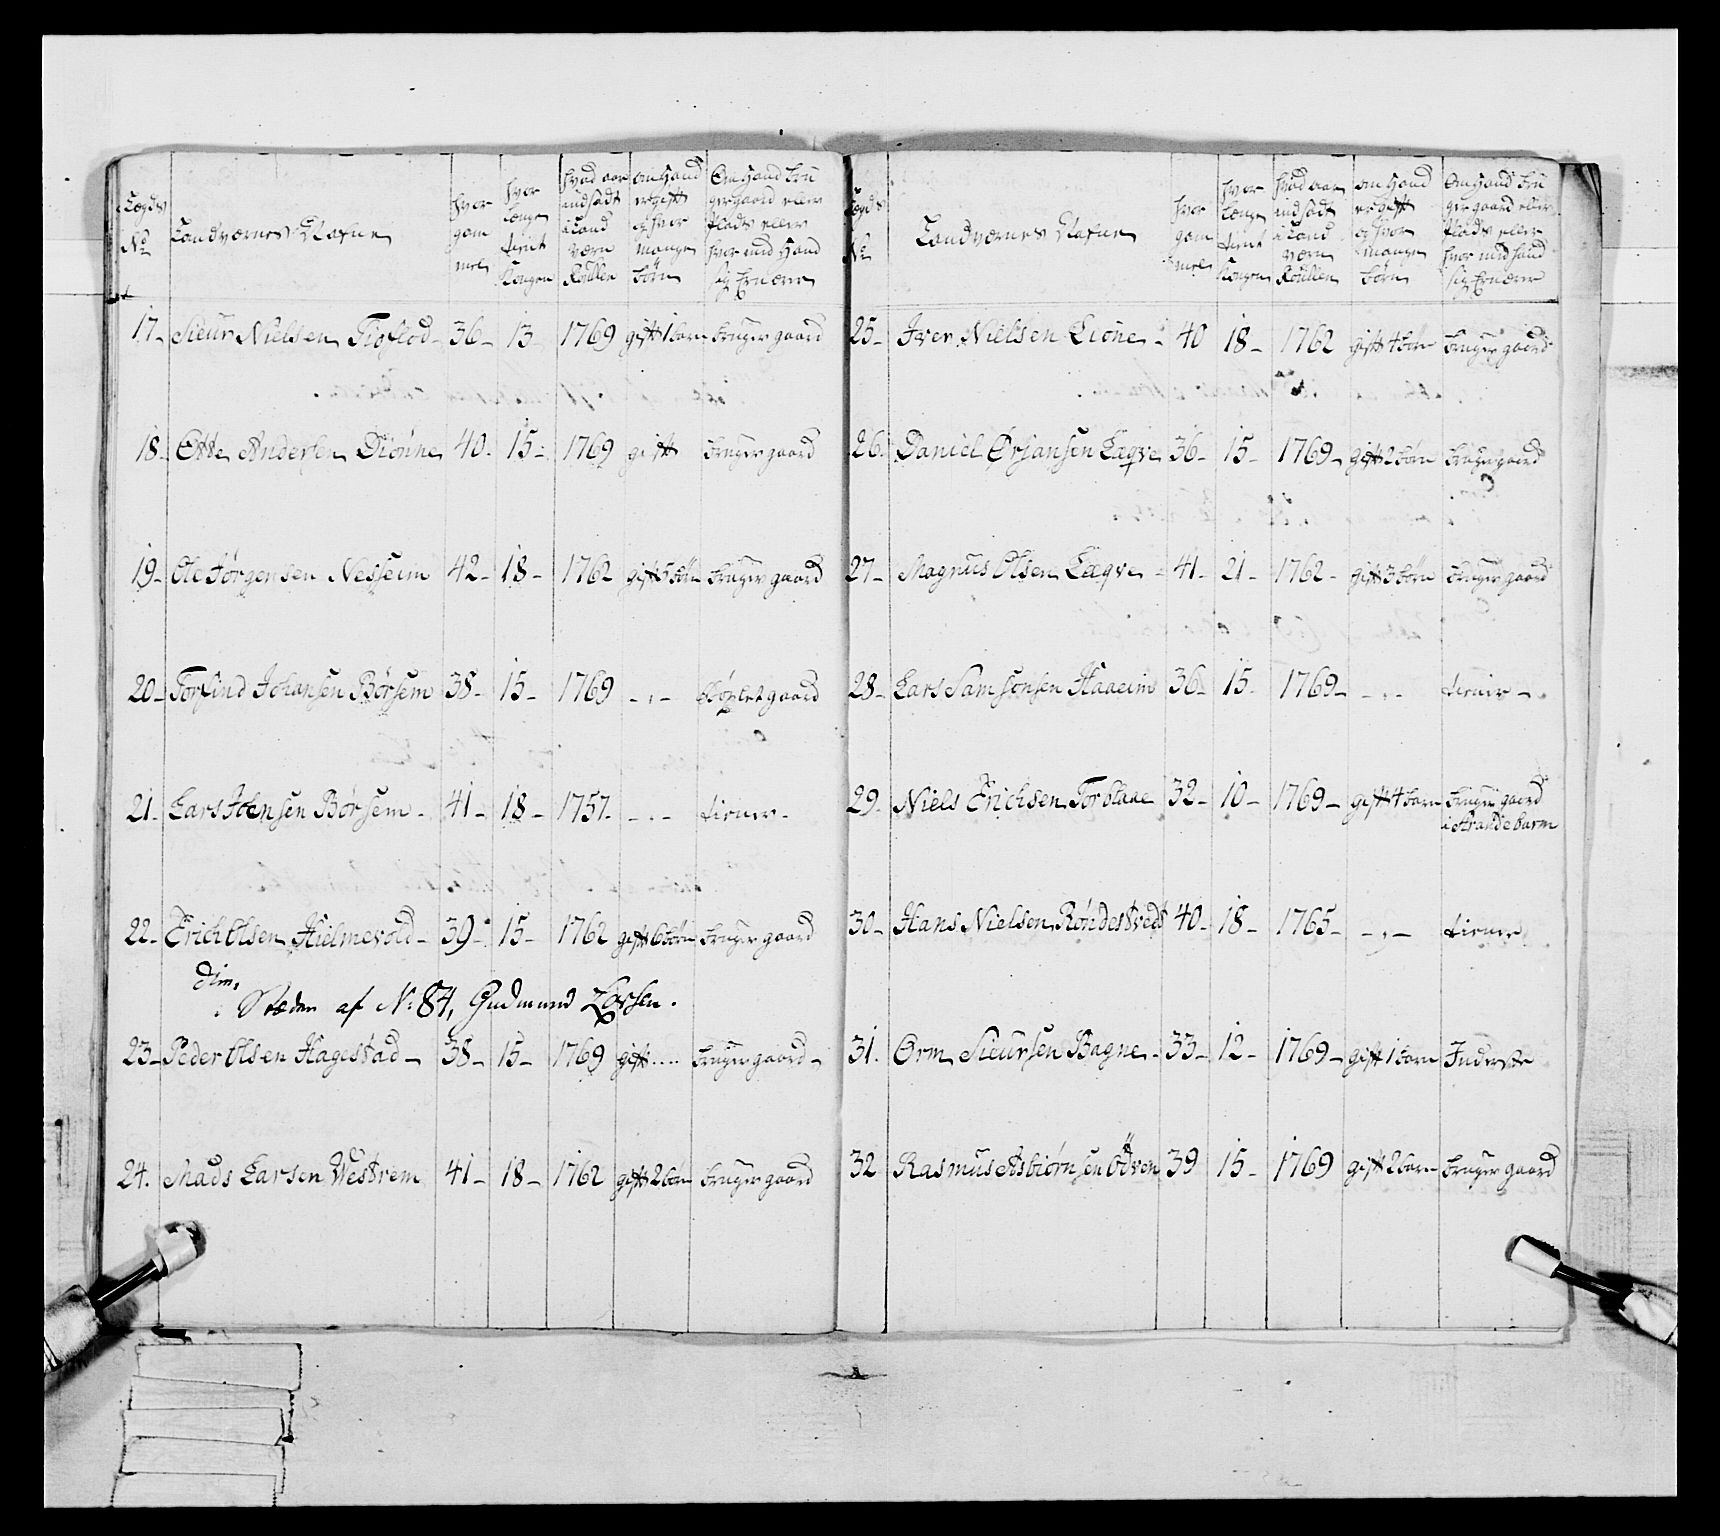 Lægds No
Landværnes Nafne
hvor gam mel
hvor Længe tient Kongen
hvad aar indsadt i Land værn Roullen
om Hand er gift og hvor mange børn
Om Hand bru ger gaard eller Plads eller hvor med Hand sig Ernærer
17 - Sieur Nielsen Tioflod - 36 - 13 - 1769 gift 1 barn bruger gaard
18 - Otte Andersen Diønne 40 - 15 - 1769 gift bruger gaard
19 - Ole Jørgensen Nesheim 42 - 18 - 1762 gift 5 børn bruger gaard
20 - Torkind Johansen Børsem 38 - 15 - 1769 - „ - gaard
21 - Lars Joensen Børsem - 41 - 18 - 1757 - - „ - tiener -
22 - Erich Olsen Hielmevold - 39 - 15 - 1762 gift 6 børn bruger gaard
dim.
i Stæden af No 84, Gudmund Larsen.
23 - Peder Olsen Hagestad - 38 - 15 - 1769 gift .... bruger gaard -
24. Mads Larsen Westrem 41 - 18 - 1762 gift 2 børn bruger gaard
Lægds No
Landværnes Nafne
hvor gam mel
hvor Længe tient Kongen
hvad aar indsadt i Land værn Roullen
om Hand er gift og hvor mange børn
Om Hand bru ger gaard eller Plads eller hvor med Hand sig Ernærer
25 - Iver Nielsen Lione - 40 18 - 1762 gift 4 børn bruger gaard
26. Daniel Ørjansen Lægve 36 - 15 - 1769 - gift 2 børn bruger gaard
27 - Magnus Olsen Lægve - 41 - 21 - 1762 - gift 3 børn bruger gaard
28 - Lars Samsonsen Haaeim 36 - 15 - 1769 - - „ - tiener -
29. Niels Erichsen Torblaae 32 - 10 - 1769 - gift 4 børn bruger gaard
i Strandebarm
30 - Hans Nielsen Røndestvedt 40 - 18 - 1765 - - „ - tiener
31. Orm Sieursen Bagne - 33 - 12 - 1769 - gift 1 barn Inderste
32 Rasmus Asbiørnsen Ödven 39 15 - 1769 gift 2 børn bruger gaard